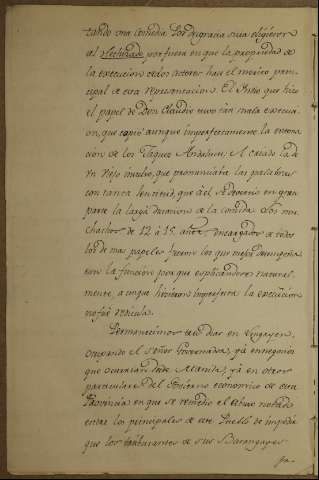 tando una comedia. Por desgracia suia eligieron
el Hechizado por fuerza en que la propriedad de
la execucion de los actores hace el merito prin-
cipal de esta representacion. El Indio que hizo
el papel de Don Claudio tuvo tan mala execuci-
on, que copió aunque imperfectamente la entona-
cion de los Jaques Andaluces; el criado la de
un viejo involc, que pronunciava las palabras
con tanta lentitud, que del se devenio en gran
parte la larga duracion de la comedia. Los mu-
chachos de 12 à 15 años, encargados de todos
los demas papeles fueron los que mejor desempeña-
ron la funcion por que esplicandose natural-
mente, aunque hicieron imperfecta la execucion
no fué ridicula.
Permanecimos tres dias en Lingayen,
ocupando el Señor Governador, yà en negocios
que ocurrian desde Manila, yà en otros
particulares del Govierno economico de esta
Provincia en que se remedió el abuso notado
entre los principales de este Pueblo de impedir
que los tributantes de sus Barangayes
pa-